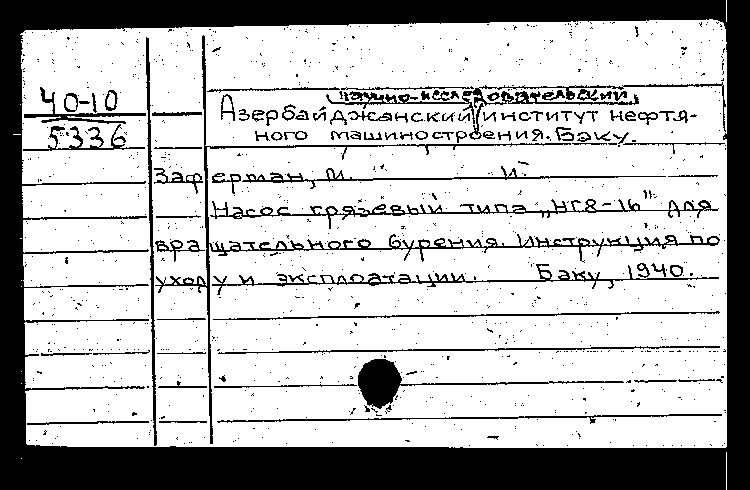 научно-исследовательский
40-10
Азербайджанский институт нефтя-
5336
ного машиностроения. Баку.
Заферман, И. И.
Насос грязевый типа „НГ8-16" для
вращательного бурения. Инструкция по
уходу и эксплоатации. Баку, 1940.